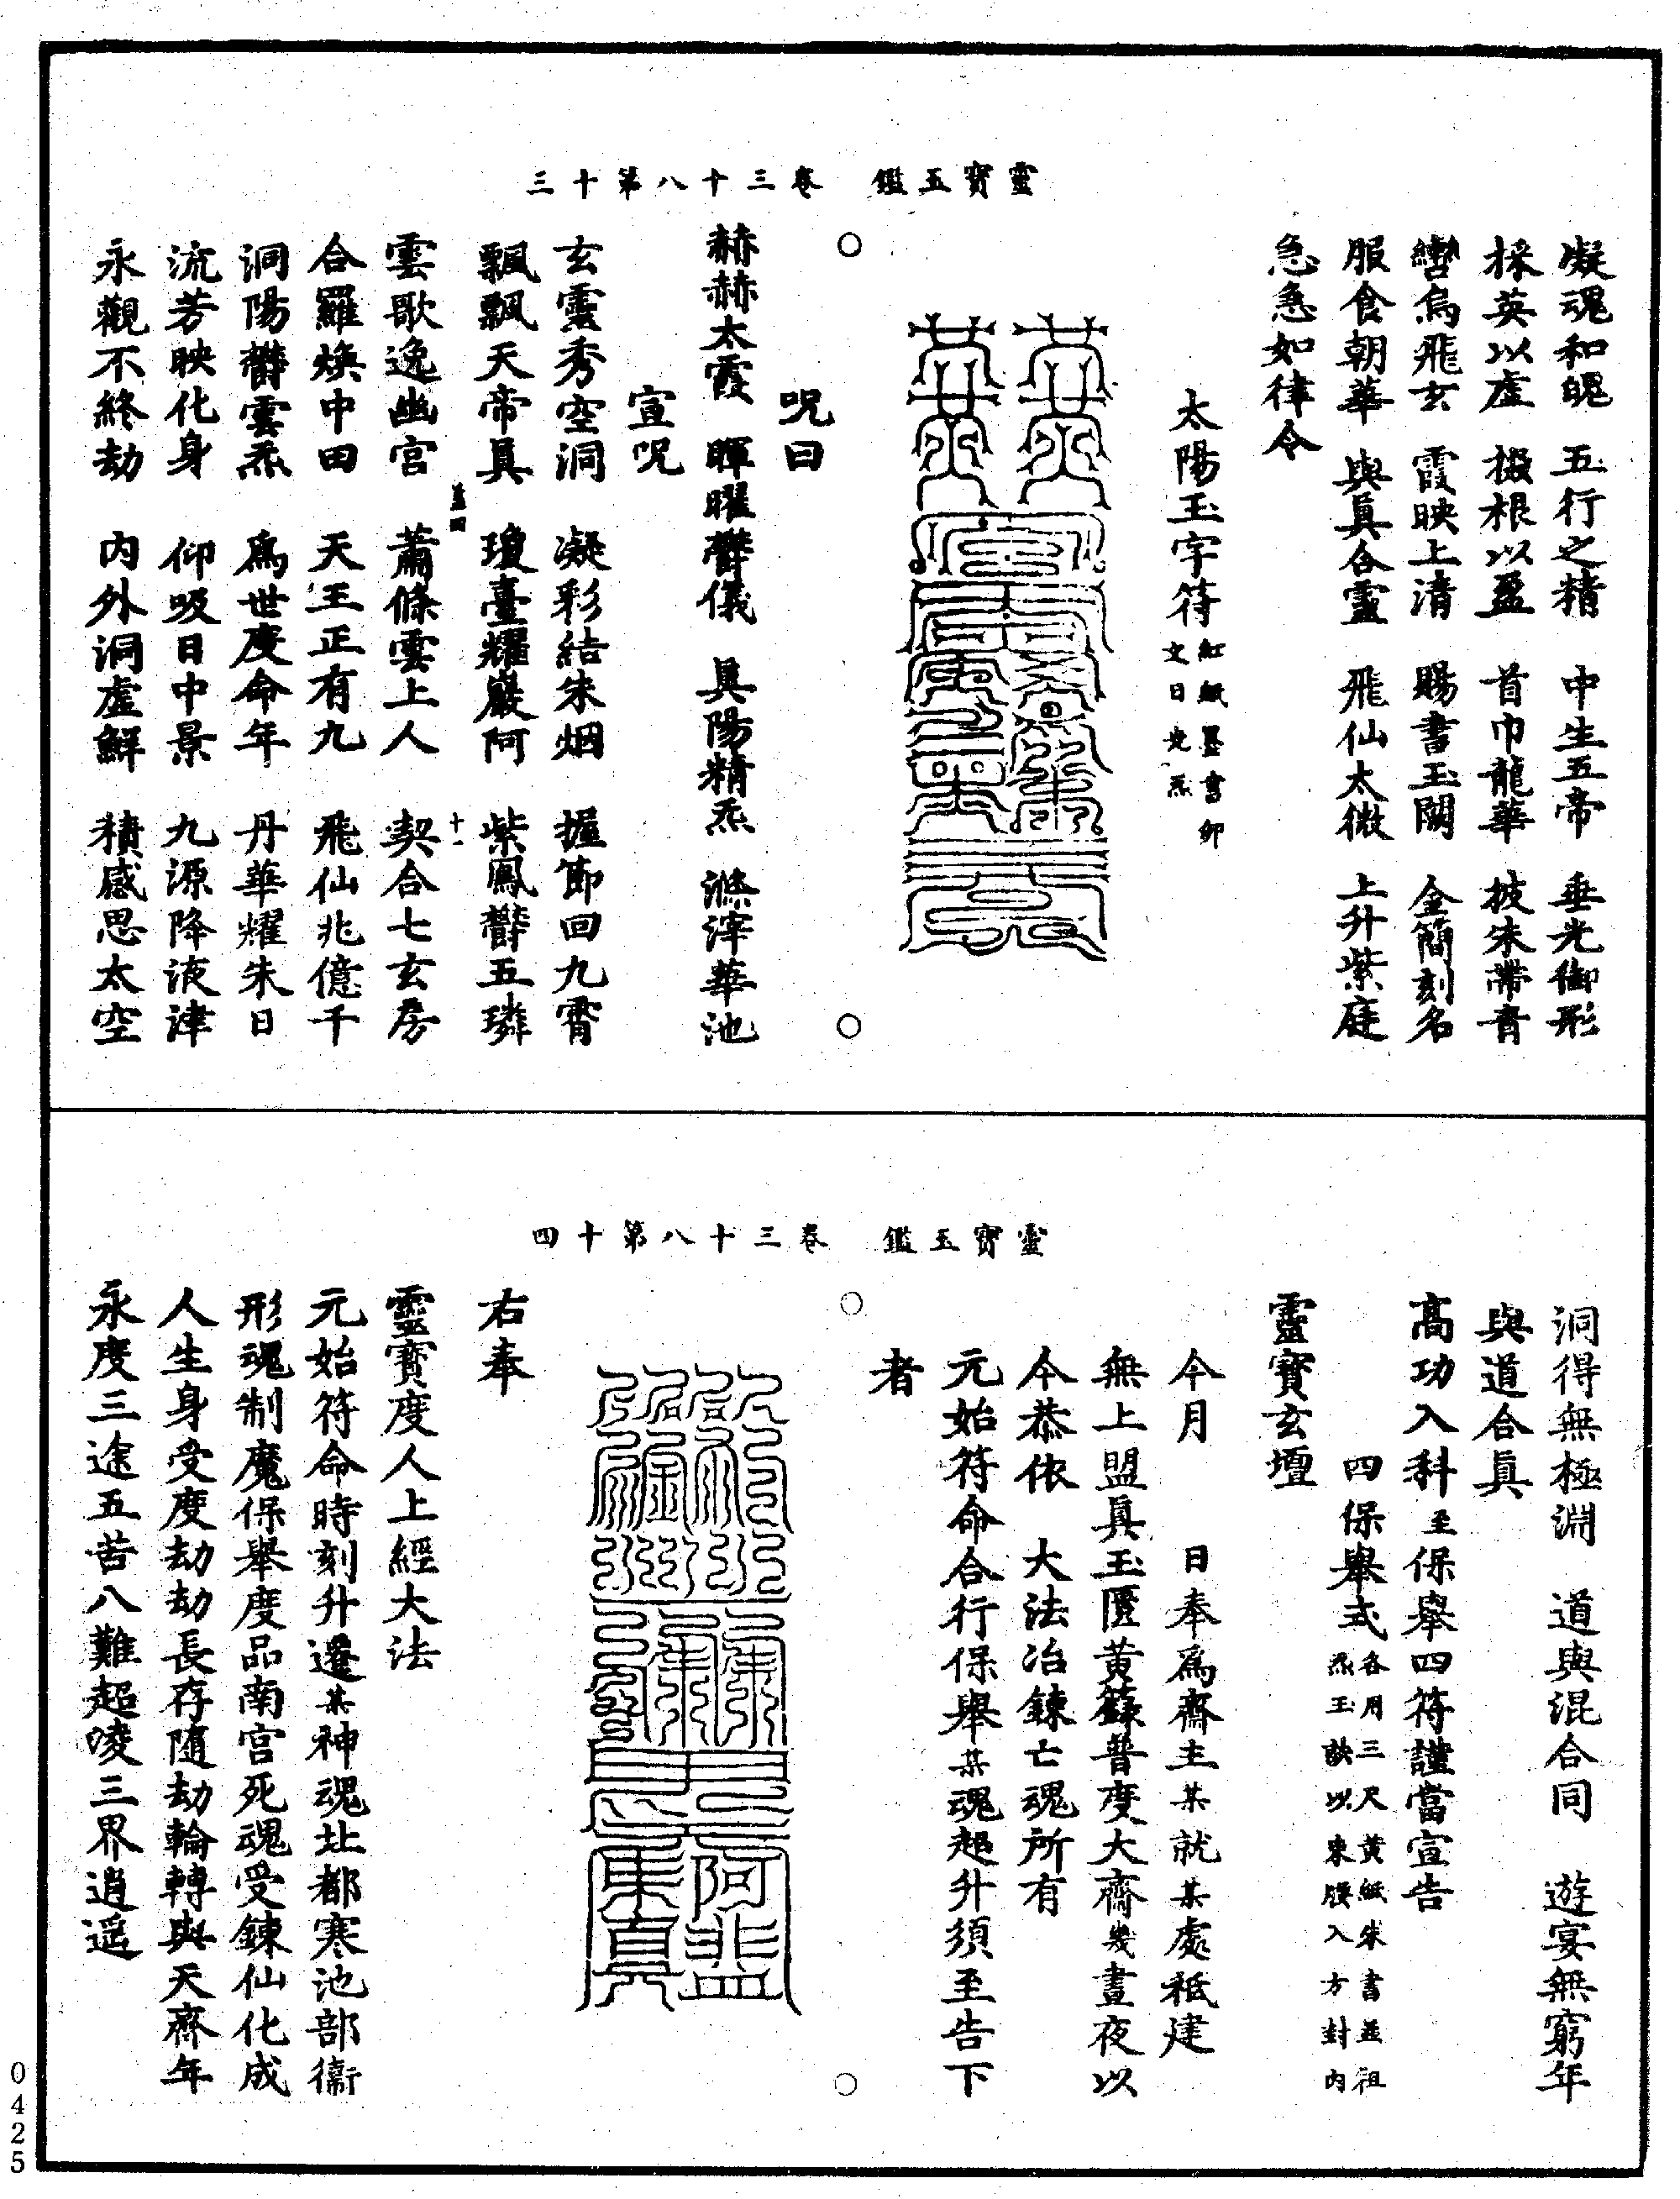 靈寶玉鑑　卷三十八第十三
凝魂和魄　五行之精　中生五帝　垂光御形
採英以虛　掇根以盈　首巾龍華　披朱帶青
轡烏飛玄　霞映上清　賜書玉闕　金簡刻名
服食朝華　與真合靈　飛仙太微　上升紫庭
急急如律令
太陽玉字符紅紙墨書卯文日光炁
咒曰
赫赫太霞　暉曜鬱儀　真陽精炁　滌滓華池
宣咒
玄雲秀空洞　凝彩結朱烟　握節回九霄
飄飄天帝真　瓊臺耀巖阿　紫鳳鬱五璘
蓋四　十一
雲歌逸幽宮　蕭條雲上人　契合七玄房
合羅煥中田　天王正有九　飛仙兆億千
洞陽鬱雲炁　為世度命年　丹華耀朱日
流芳映化身　仰吸日中景　九源降液津
永觀不終劫　內外洞虛鮮　積感思太空
靈寶玉鑑　卷三十八第十四
洞得無極淵　道與混合同　遊宴無窮年
與道合真
高功入科至保舉四符謹當宣告
四保舉式各用三尺黃紙朱書並祖炁玉訣以束腰入方封內
靈寶玄壇
今月　日奉為齋主某就某處祗建
無上盟真玉匱黃籙普度大齋幾晝夜以
今恭依　大法冶鍊亡魂所有
元始符命合行保舉某魂超升須至告下
者
阿　東
韭　真
右奉
靈寶度人上經大法
元始符命時刻升遷某神魂北都寒池部衛
形魂制魔保舉度品南宮死魂受鍊仙化成
人生身受度劫劫長存隨劫輪轉與天齊年
永度三途五苦八難超凌三界逍遙
0425